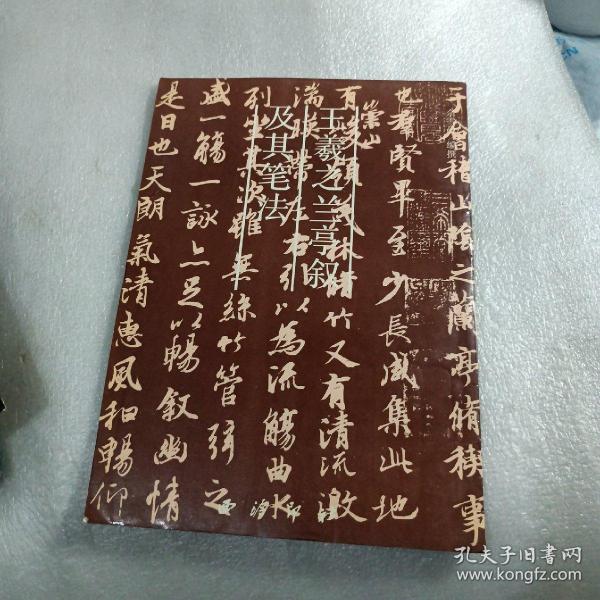 于會稽山陰之蘭亭脩稧事
也羣賢畢至少長咸集此地
有崇山峻領茂林脩竹又有清流激
湍暎帶左右引以為流觴曲水
列坐其次雖無絲竹管弦之
盛一觴一詠亦足以暢敘幽情
是日也天朗氣清惠風和暢仰
王羲之兰亭叙
及其笔法
编撰
西泠印社
孔夫子旧书网
www.kongfz.com